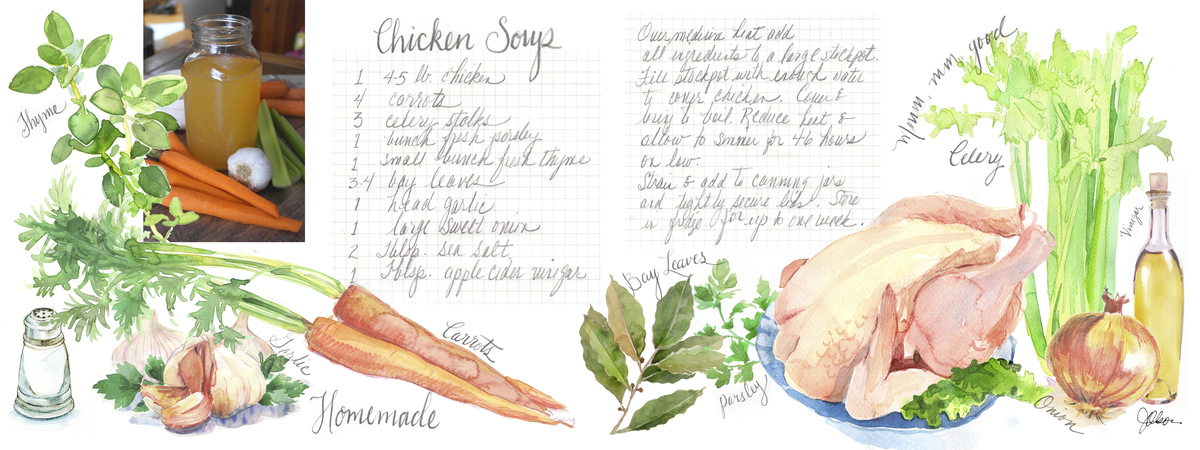 Chicken Soup
1 4-5 lb. chicken
4 carrots
3 celery stalks
1 bunch fresh parsley
1 small bunch fresh thyme
3-4 bay leaves
1 head garlic
1 large sweet onion
2 Tblsp. sea salt
1 Tblsp. apple cider vinegar
Over medium heat add
all ingredients to a large stockpot.
Fill stockpot with enough water
to cover chicken. Cover &
bring to boil. Reduce heat &
allow to simmer for 4-6 hours
on low.
Strain & add to canning jars
and tightly secure lids. Store
in fridge for up to one week.
Mmm mm good
Thyme
Celery
Vinegar
Bay Leaves
Carrots
Garlic
Parsley
Onion
Homemade
JOlson